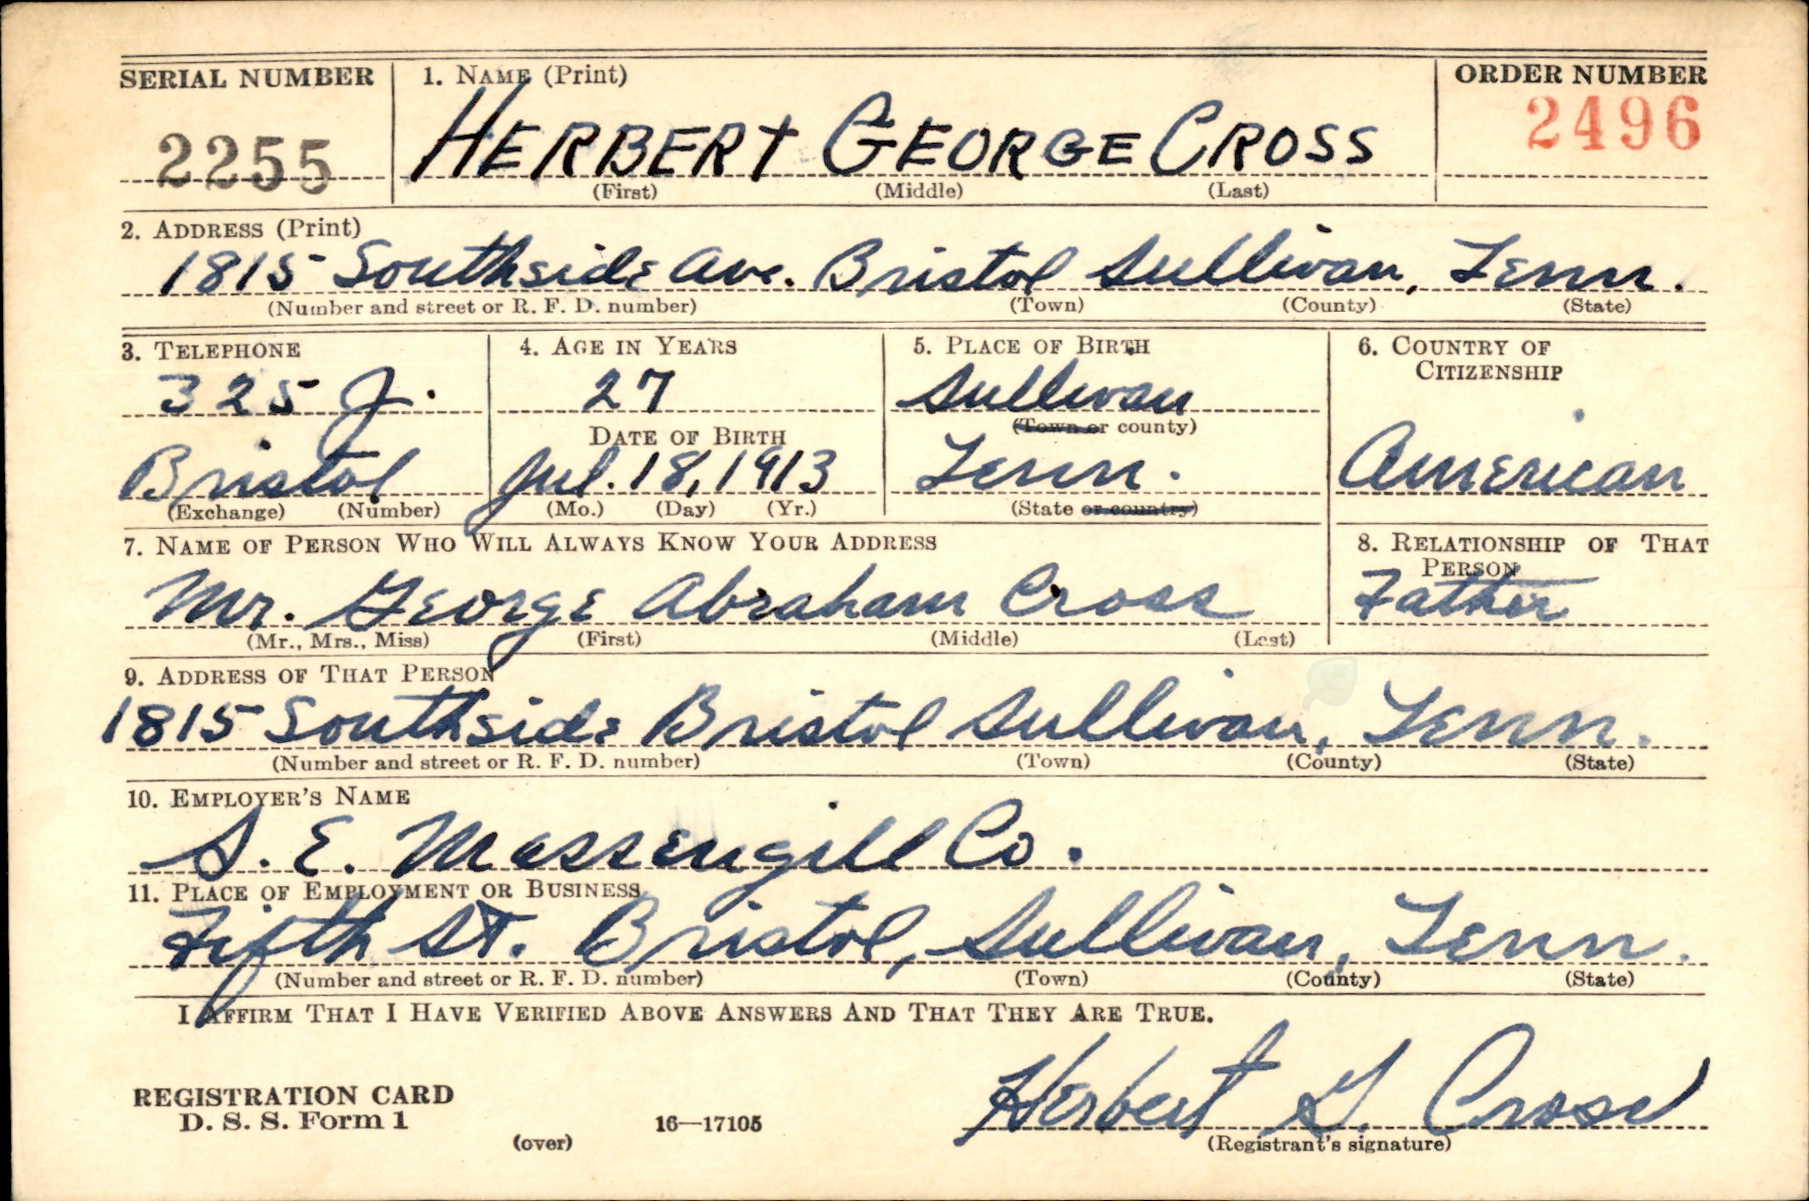 SERIAL NUMBER 1. NAME (Print) ORDER NUMBER
2255 HERBERT GEORGE CROSS 2496
(First) (Middle) (Last)
2. ADDRESS (Print)
1815 Southside Ave. Bristol Sullivan, Tenn.
(Number and street or R. F. D. number) (Town) (County) (State)
3. TELEPHONE 4. AGE IN YEARS 5. PLACE OF BIRTH 6. COUNTRY OF
CITIZENSHIP
325 J. 27 Sullivan
(Town or county)
DATE OF BIRTH
Bristol Jul. 18, 1913 Tenn. American
(Exchange) (Number) (Mo.) (Day) (Yr.) (State or country)
7. NAME OF PERSON WHO WILL ALWAYS KNOW YOUR ADDRESS 8. RELATIONSHIP OF THAT
PERSON
Mr. George Abraham Cross Father
(Mr., Mrs., Miss) (First) (Middle) (Last)
9. ADDRESS OF THAT PERSON
1815 Southside Bristol Sullivan, Tenn.
(Number and street or R. F. D. number) (Town) (County) (State)
10. EMPLOYER'S NAME
S. E. Massengill Co.
11. PLACE OF EMPLOYMENT OR BUSINESS
Fifth St. Bristol, Sullivan, Tenn.
(Number and street or R. F. D. number) (Town) (County) (State)
I AFFIRM THAT I HAVE VERIFIED ABOVE ANSWERS AND THAT THEY ARE TRUE.
REGISTRATION CARD
D. S. S. Form 1 16—17105 Herbert G. Cross
(over) (Registrant's signature)